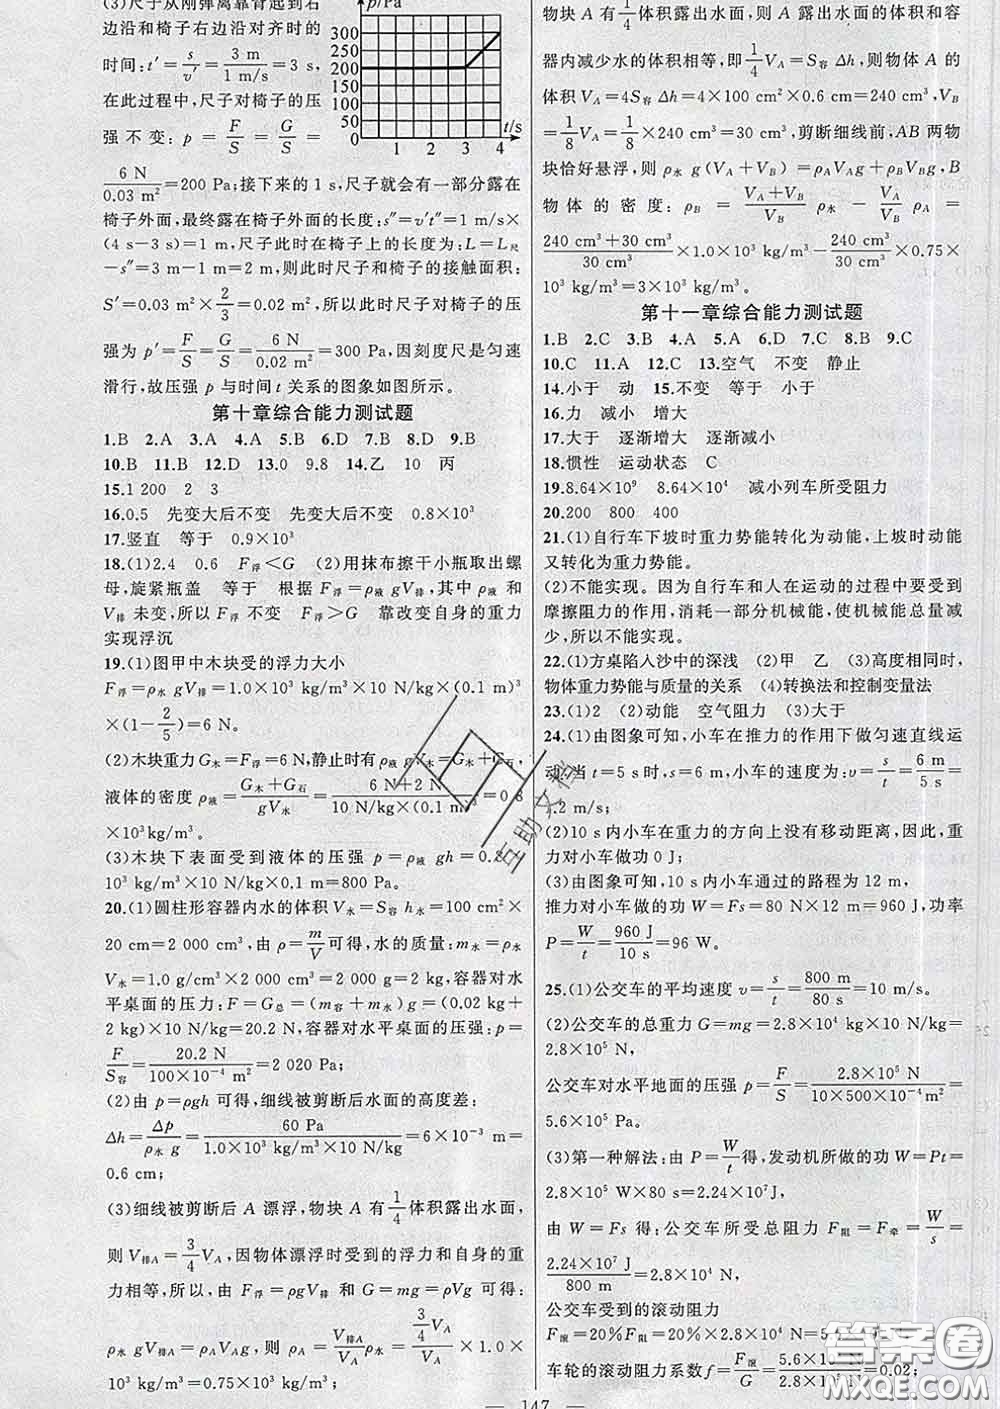 (3)尺子从刚弹离靠背起到右
边沿和椅子右边沿对齐时的
时间:t′=s/v′=3 m/1 m/s=3 s,
在此过程中,尺子对椅子的压
强不变:p=F/S=G/S=
p/Pa
300
250
200
150
100
50
0
1 2 3 4
t/s
6 N/0.03 m²=200 Pa;接下来的1 s,尺子就会有一部分露在
椅子外面,最终露在椅子外面的长度:s″=v′t″=1 m/s×
(4 s-3 s)=1 m,尺子此时在椅子上的长度为:L=L尺
-s″=3 m-1 m=2 m,则此时尺子和椅子的接触面积:
S′=0.03 m²×2/3=0.02 m²,所以此时尺子对椅子的压
强为p′=F/S=G/S=6 N/0.02 m²=300 Pa,因刻度尺是匀速
滑行,故压强p与时间t关系的图象如图所示。
第十章综合能力测试题
1.B 2.A 3.A 4.A 5.B 6.D 7.B 8.D 9.B
10.B 11.B 12.D 13.0 9.8 14.乙 10 丙
15.1 200 2 3
16.0.5 先变大后不变 先变大后不变 0.8×10³
17.竖直 等于 0.9×10³
18.(1)2.4 0.6 F浮<G (2)用抹布擦干小瓶取出螺
母,旋紧瓶盖 等于 根据F浮=ρ液gV排,其中ρ液和
V排未变,所以F浮不变 F浮>G 靠改变自身的重力
实现浮沉
19.(1)图甲中木块受的浮力大小
F浮=ρ水gV排=1.0×10³ kg/m³×10 N/kg×(0.1 m)³
×(1-2/5)=6 N。
(2)木块重力G木=F浮=6 N,静止时有ρ液gV木=G木+G石,
液体的密度ρ液=G木+G石/gV水=6 N+2 N/10 N/kg×(0.1 m)³=0.8
×10³kg/m³。
(3)木块下表面受到液体的压强p=ρ液gh=0.8×
10³ kg/m³×10 N/kg×0.1 m=800 Pa。
20.(1)圆柱形容器内水的体积V水=S容h水=100 cm²×
20 cm=2 000 cm³,由ρ=m/V可得,水的质量:m水=ρ水
V水=1.0 g/cm³×2 000 cm³=2 000 g=2 kg,容器对水
平桌面的压力:F=G总=(m容+m水)g=(0.02 kg+
2 kg)×10 N/kg=20.2 N,容器对水平桌面的压强:p=
F/S容=20.2 N/100×10⁻⁴ m²=2 020 Pa;
(2)由p=ρgh可得,细线被剪断后水面的高度差:
Δh=Δp/ρ水g=60 Pa/1.0×10³ kg/m³×10 N/kg=6×10⁻³ m=
0.6 cm;
(3)细线被剪断后A漂浮,物块A有1/4体积露出水面,
则V排A=3/4VA,因物体漂浮时受到的浮力和自身的重
力相等,所以,由F浮=ρgV排和G=mg=ρVg可得:
ρ水gV排A=ρAVAg,则ρA=V排A/VAρ水=3/4VA/VA×1.0×
10³ kg/m³=0.75×10³ kg/m³;
物块A有1/4体积露出水面,则A露出水面的体积和容
器内减少水的体积相等,即1/4VA=S容Δh,则物体A的
体积VA=4S容Δh=4×100 cm²×0.6 cm=240 cm³,VB
=1/8VA=1/8×240 cm³=30 cm³,剪断细线前,AB两物
块恰好悬浮,则ρ水g(VA+VB)=ρAVAg+ρBVBg,B
物体的密度:ρB=VA+VB/VBρ水-VA/VBρA=
240 cm³+30 cm³/30 cm³×1.0×10³ kg/m³-240 cm³/30 cm³×0.75×
10³ kg/m³=3×10³ kg/m³。
第十一章综合能力测试题
1.B 2.C 3.B 4.A 5.A 6.D 7.C 8.B 9.C
10.C 11.A 12.C 13.空气 不变 静止
14.小于 动 15.不变 等于 小于
16.力 减小 增大
17.大于 逐渐增大 逐渐减小
18.惯性 运动状态 C
19.8.64×10⁹ 8.64×10⁴ 减小列车所受阻力
20.200 800 400
21.(1)自行车下坡时重力势能转化为动能,上坡时动能
又转化为重力势能。
(2)不能实现。因为自行车和人在运动的过程中要受到
摩擦阻力的作用,消耗一部分机械能,使机械能总量减
少,所以不能实现。
22.(1)方桌陷入沙中的深浅 (2)甲 乙 (3)高度相同时,
物体重力势能与质量的关系 (4)转换法和控制变量法
23.(1)2 (2)动能 空气阻力 (3)大于
24.(1)由图象可知,小车在推力的作用下做匀速直线运
动,当t=5 s时,s=6 m,小车的速度为:v=s/t=6 m/5 s=
1.2 m/s;
(2)10 s内小车在重力的方向上没有移动距离,因此,重
力对小车做功0 J;
(3)由图象可知,10 s内小车通过的路程为12 m,
推力对小车做的功W=Fs=80 N×12 m=960 J,功率
P=W/t=960 J/10 s=96 W。
25.(1)公交车的平均速度v=s/t=800 m/80 s=10 m/s。
(2)公交车的总重力G=mg=2.8×10⁴kg×10 N/kg=
2.8×10⁵ N,
公交车对水平地面的压强p=F/S=2.8×10⁵ N/10×500×10⁻⁴m²=
5.6×10⁵ Pa。
(3)第一种解法:由P=W/t得,发动机所做的功W=Pt=
2.8×10⁵ W×80 s=2.24×10⁷J,
由W=Fs得:公交车所受总阻力F阻=F牵=W/s=
2.24×10⁷ J/800 m=2.8×10⁴N,
公交车受到的滚动阻力
F滚=20%F阻=20%×2.8×10⁴ N=5.6×10³ N,
车轮的滚动阻力系数f=F滚/G=5.6×10³ N/2.8×10⁵ N=0.02;
— 147 —
互助文档
答案圈
MXQE.COM